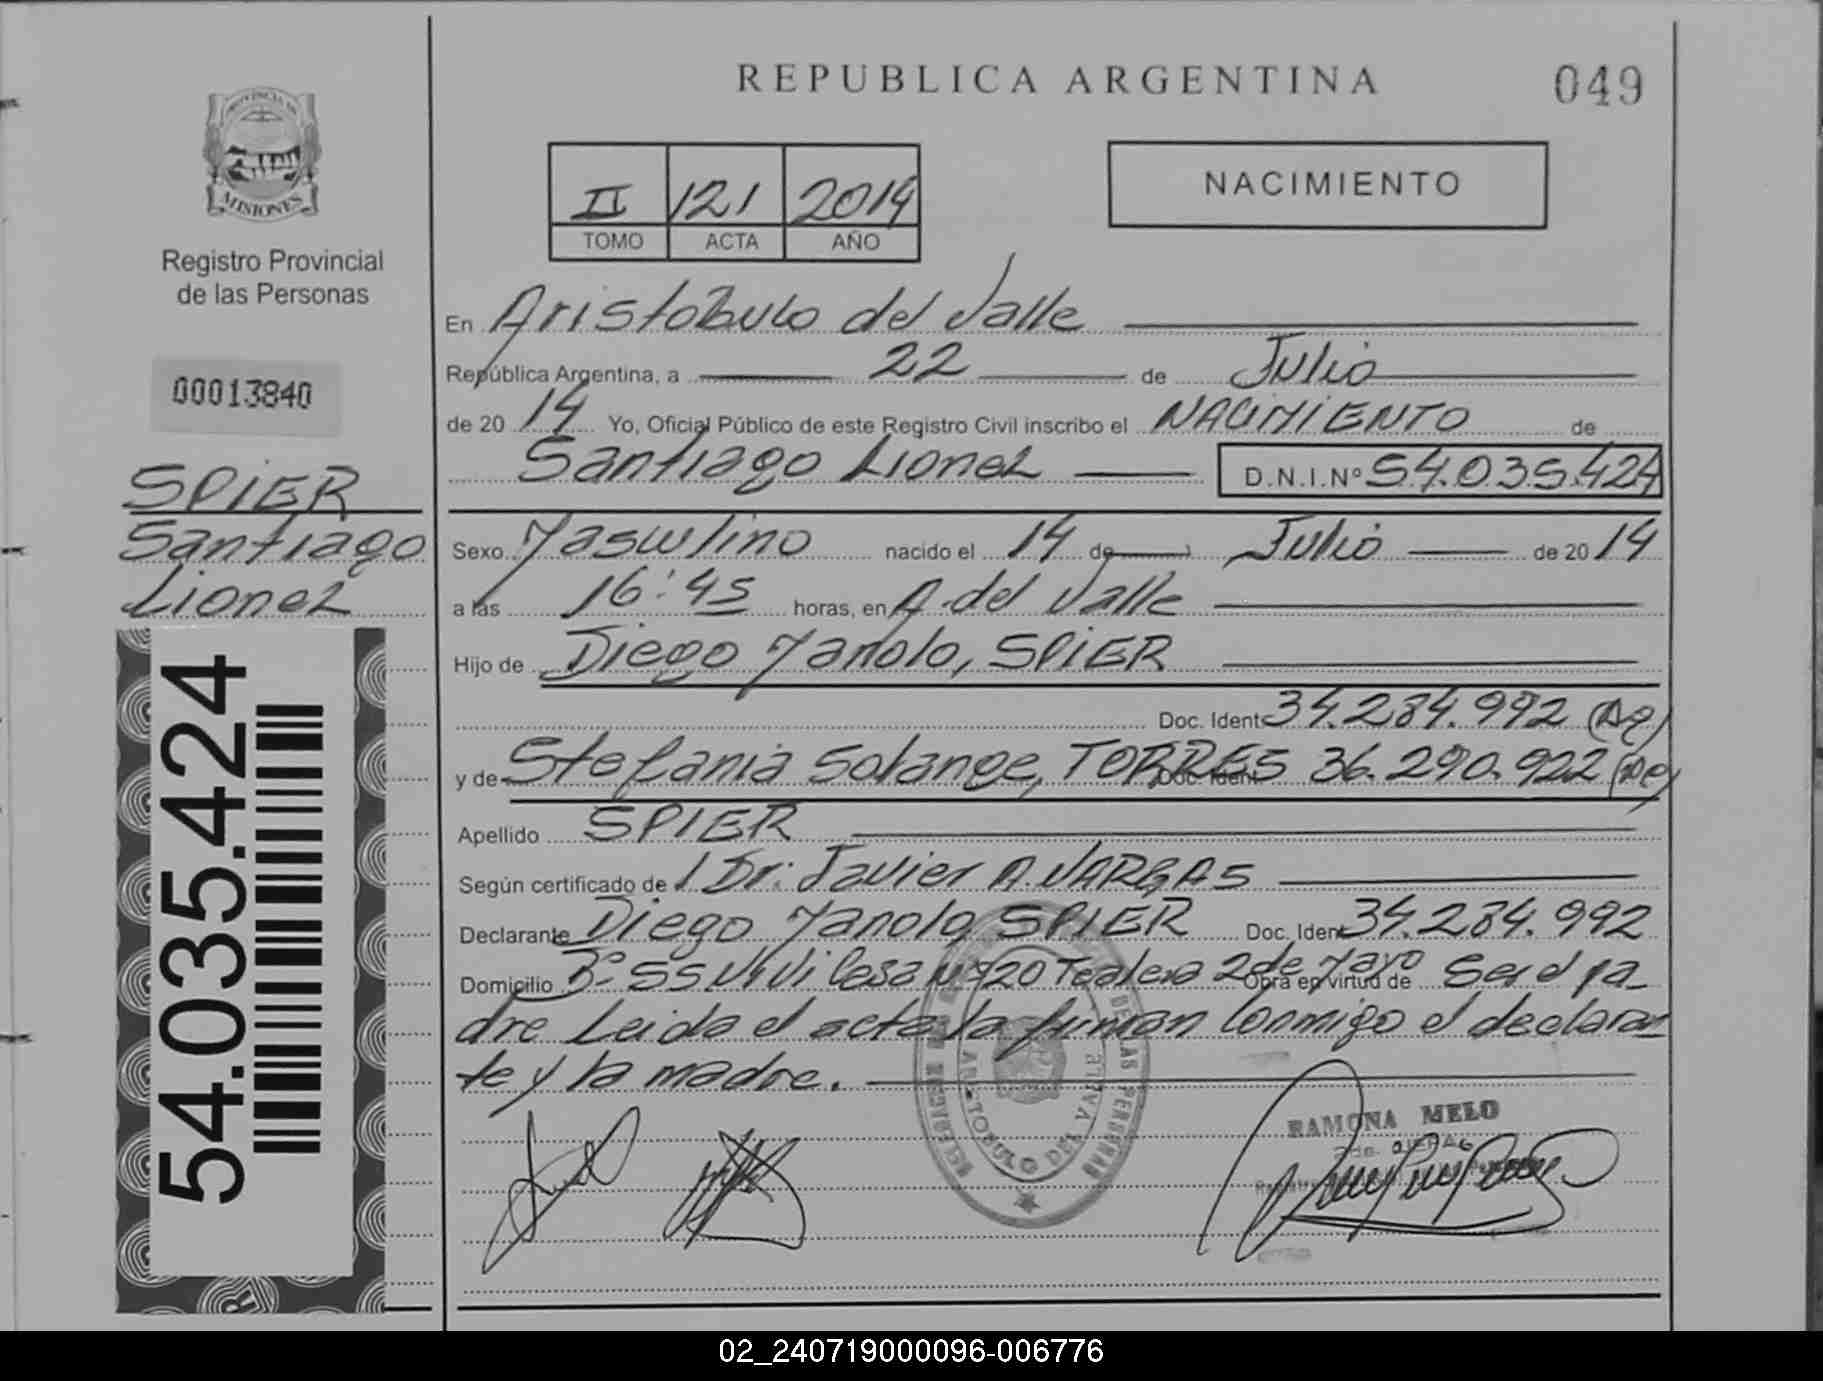 REPUBLICA ARGENTINA
049
PROVINCIA DE
MISIONES
Registro Provincial
de las Personas
00013840
SPIER
Santiago
Lionel
54.035.424
II 121 2014
TOMO ACTA AÑO
NACIMIENTO
En Aristobulo del Valle
República Argentina, a 22 de Julio
de 20 14 Yo, Oficial Público de este Registro Civil inscribo el NACIMIENTO de
Santiago Lionel D.N.I.Nº 54.035.424
Sexo Masculino nacido el 14 de Julio de 20 14
a las 16:45 horas, en A. del Valle
Hijo de Diego Manolo, SPIER
Doc. Ident 34.284.992 (Ag)
y de Stefania Solange, TORRES Doc. Ident 36.290.922 (Ag)
Apellido SPIER
Según certificado de / Dr. Javier A. VARGAS
Declarante Diego Manolo SPIER Doc. Ident 34.284.992
Domicilio Bº 55 Vivi Casa Nº 20 2 de Mayo Obra en virtud de Ser el pa_
dre Leida el acta la firman Conmigo el declaran
te y la madre.
DE LAS PERSONAS
ARISTOBULO DEL VALLE
RAMONA MELO
02_240719000096-006776